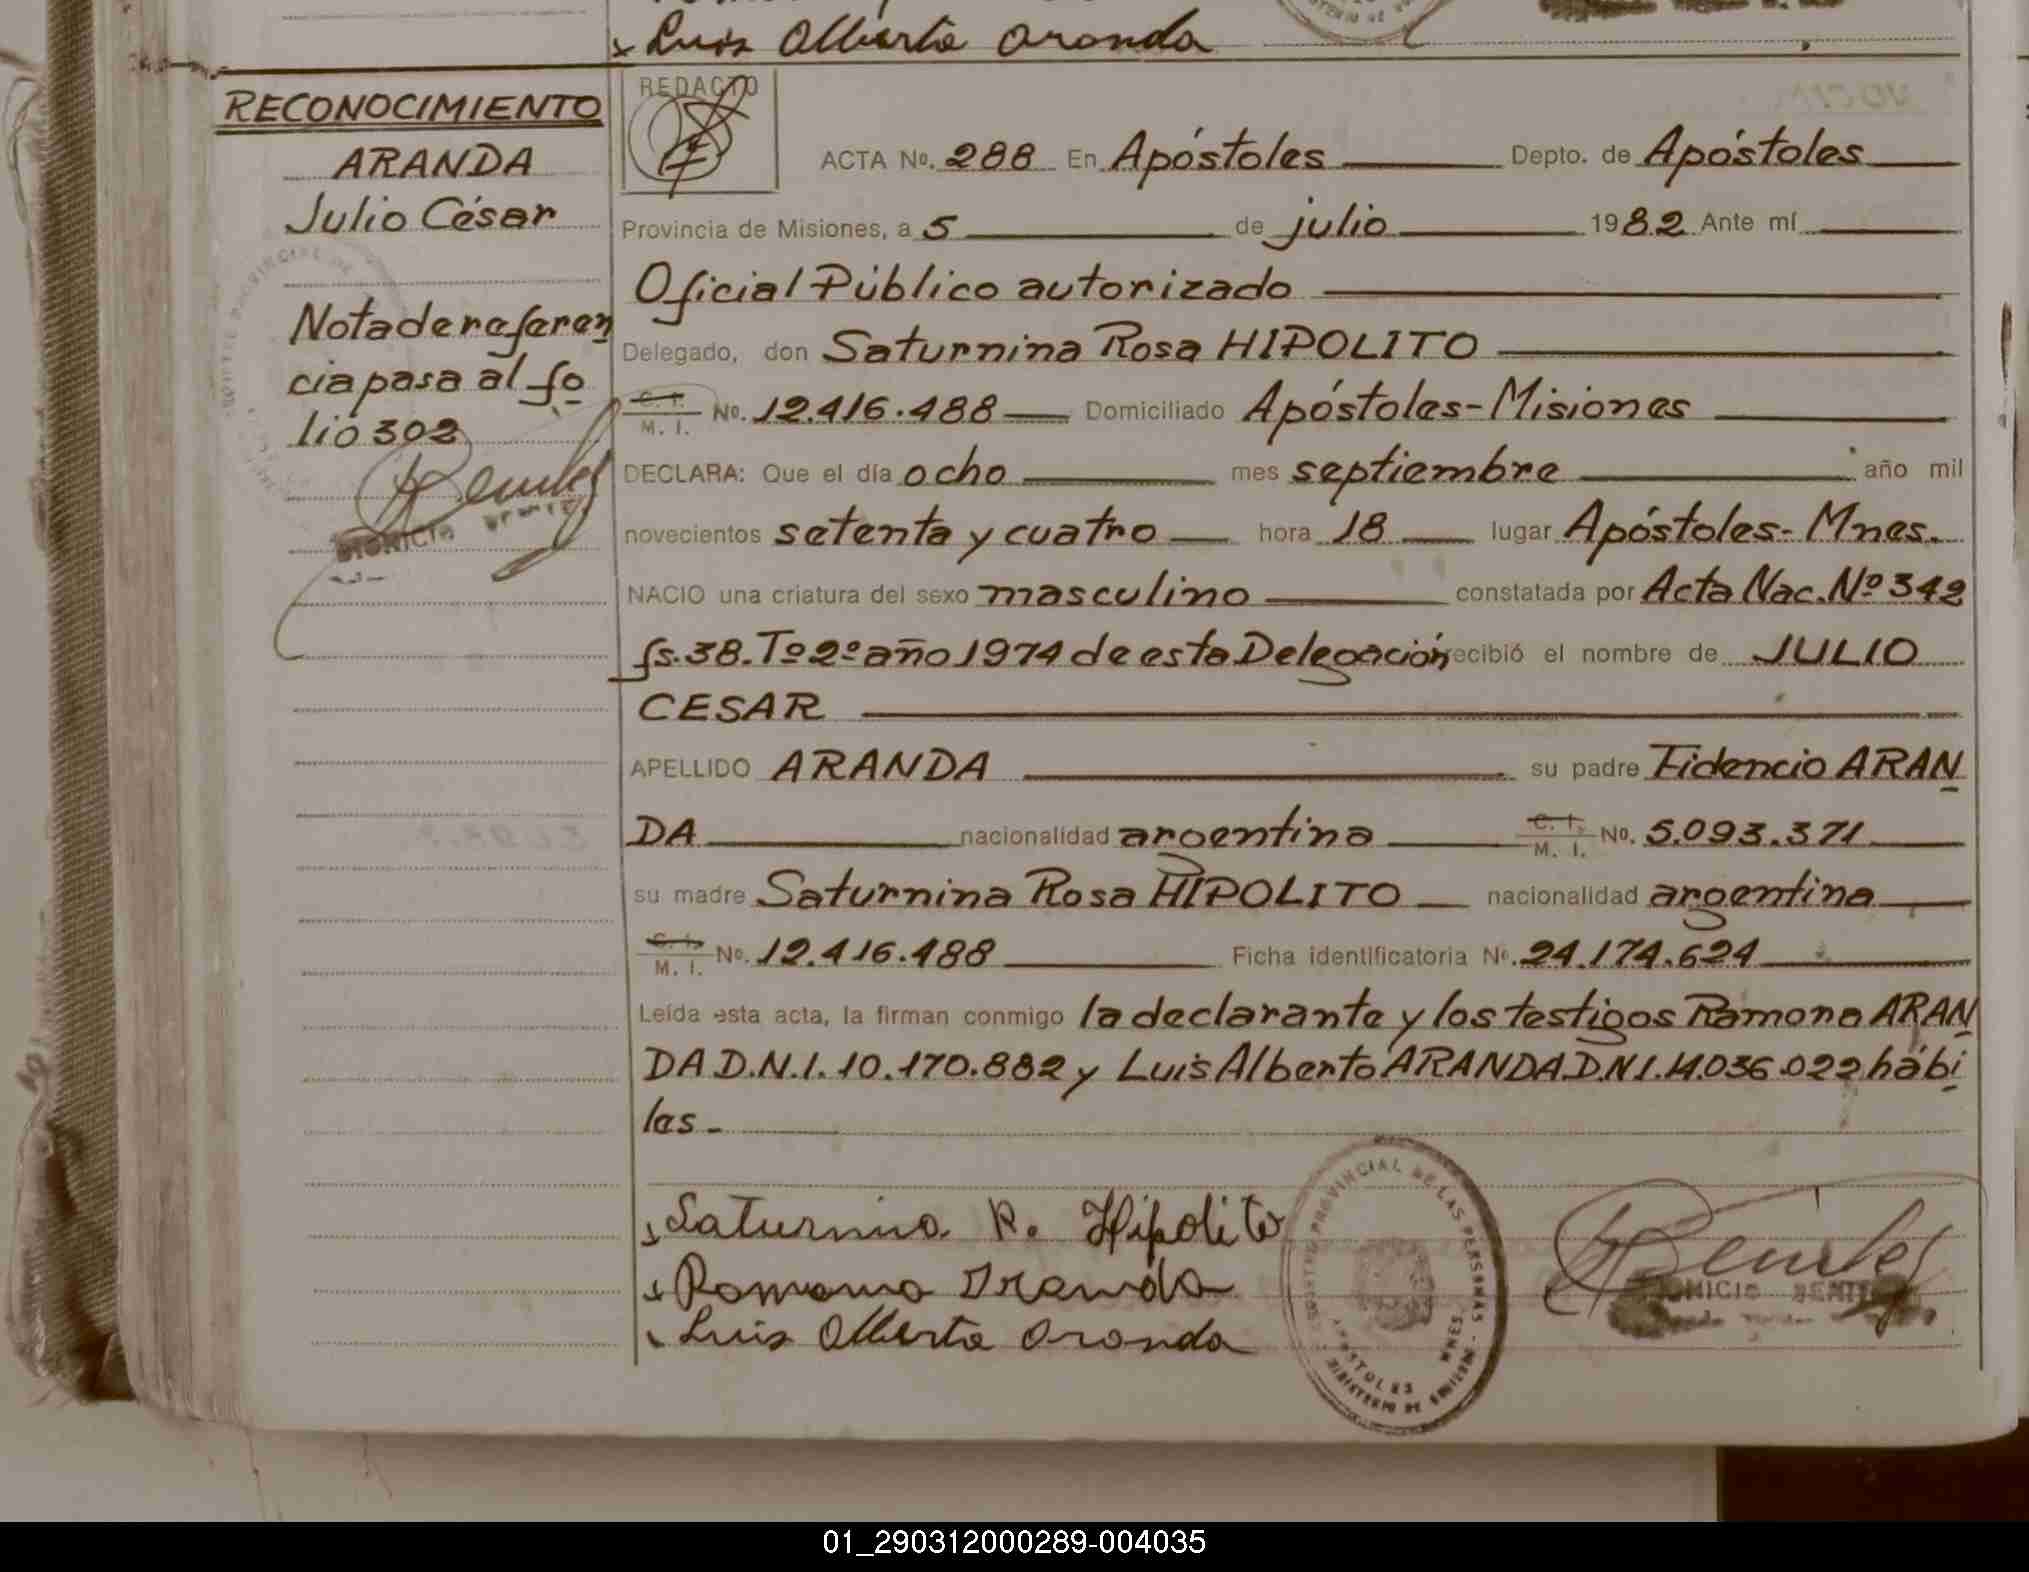 Luis Alberto Aranda
RECONOCIMIENTO
ARANDA
Julio César
Nota de referen
cia pasa al fo
lio 302
DIONICIO BENITEZ
REDACTO
ACTA No. 288 En Apóstoles Depto. de Apóstoles
Provincia de Misiones, a 5 de julio 1982 Ante mí
Oficial Público autorizado
Delegado, don Saturnina Rosa HIPOLITO
C. I. M. I. No. 12.416.488 Domiciliado Apóstoles-Misiones
DECLARA: Que el día ocho mes septiembre año mil
novecientos setenta y cuatro hora 18 lugar Apóstoles-Mnes.
NACIO una criatura del sexo masculino constatada por Acta Nac. Nº 342
fs. 38. Tº 2º año 1974 de esta Delegación recibió el nombre de JULIO
CESAR
APELLIDO ARANDA su padre Fidencio ARAN
DA nacionalidad argentina C. I. M. I. No. 5.093.371
su madre Saturnina Rosa HIPOLITO nacionalidad argentina
C. I. M. I. No. 12.416.488 Ficha identificatoria No. 24.174.624
Leída esta acta, la firman conmigo la declarante y los testigos Ramona ARAN
DA D.N.I. 10.170.882 y Luis Alberto ARANDA D.N.I. 14.036.022 hábi
les -
Saturnina R. Hipolito
Ramona Aranda
Luis Alberto Aranda
REGISTRO PROVINCIAL DE LAS PERSONAS
APOSTOLES MNES.
MINISTERIO DE GOBIERNO
Benitez
DIONICIO BENITEZ
01_290312000289-004035